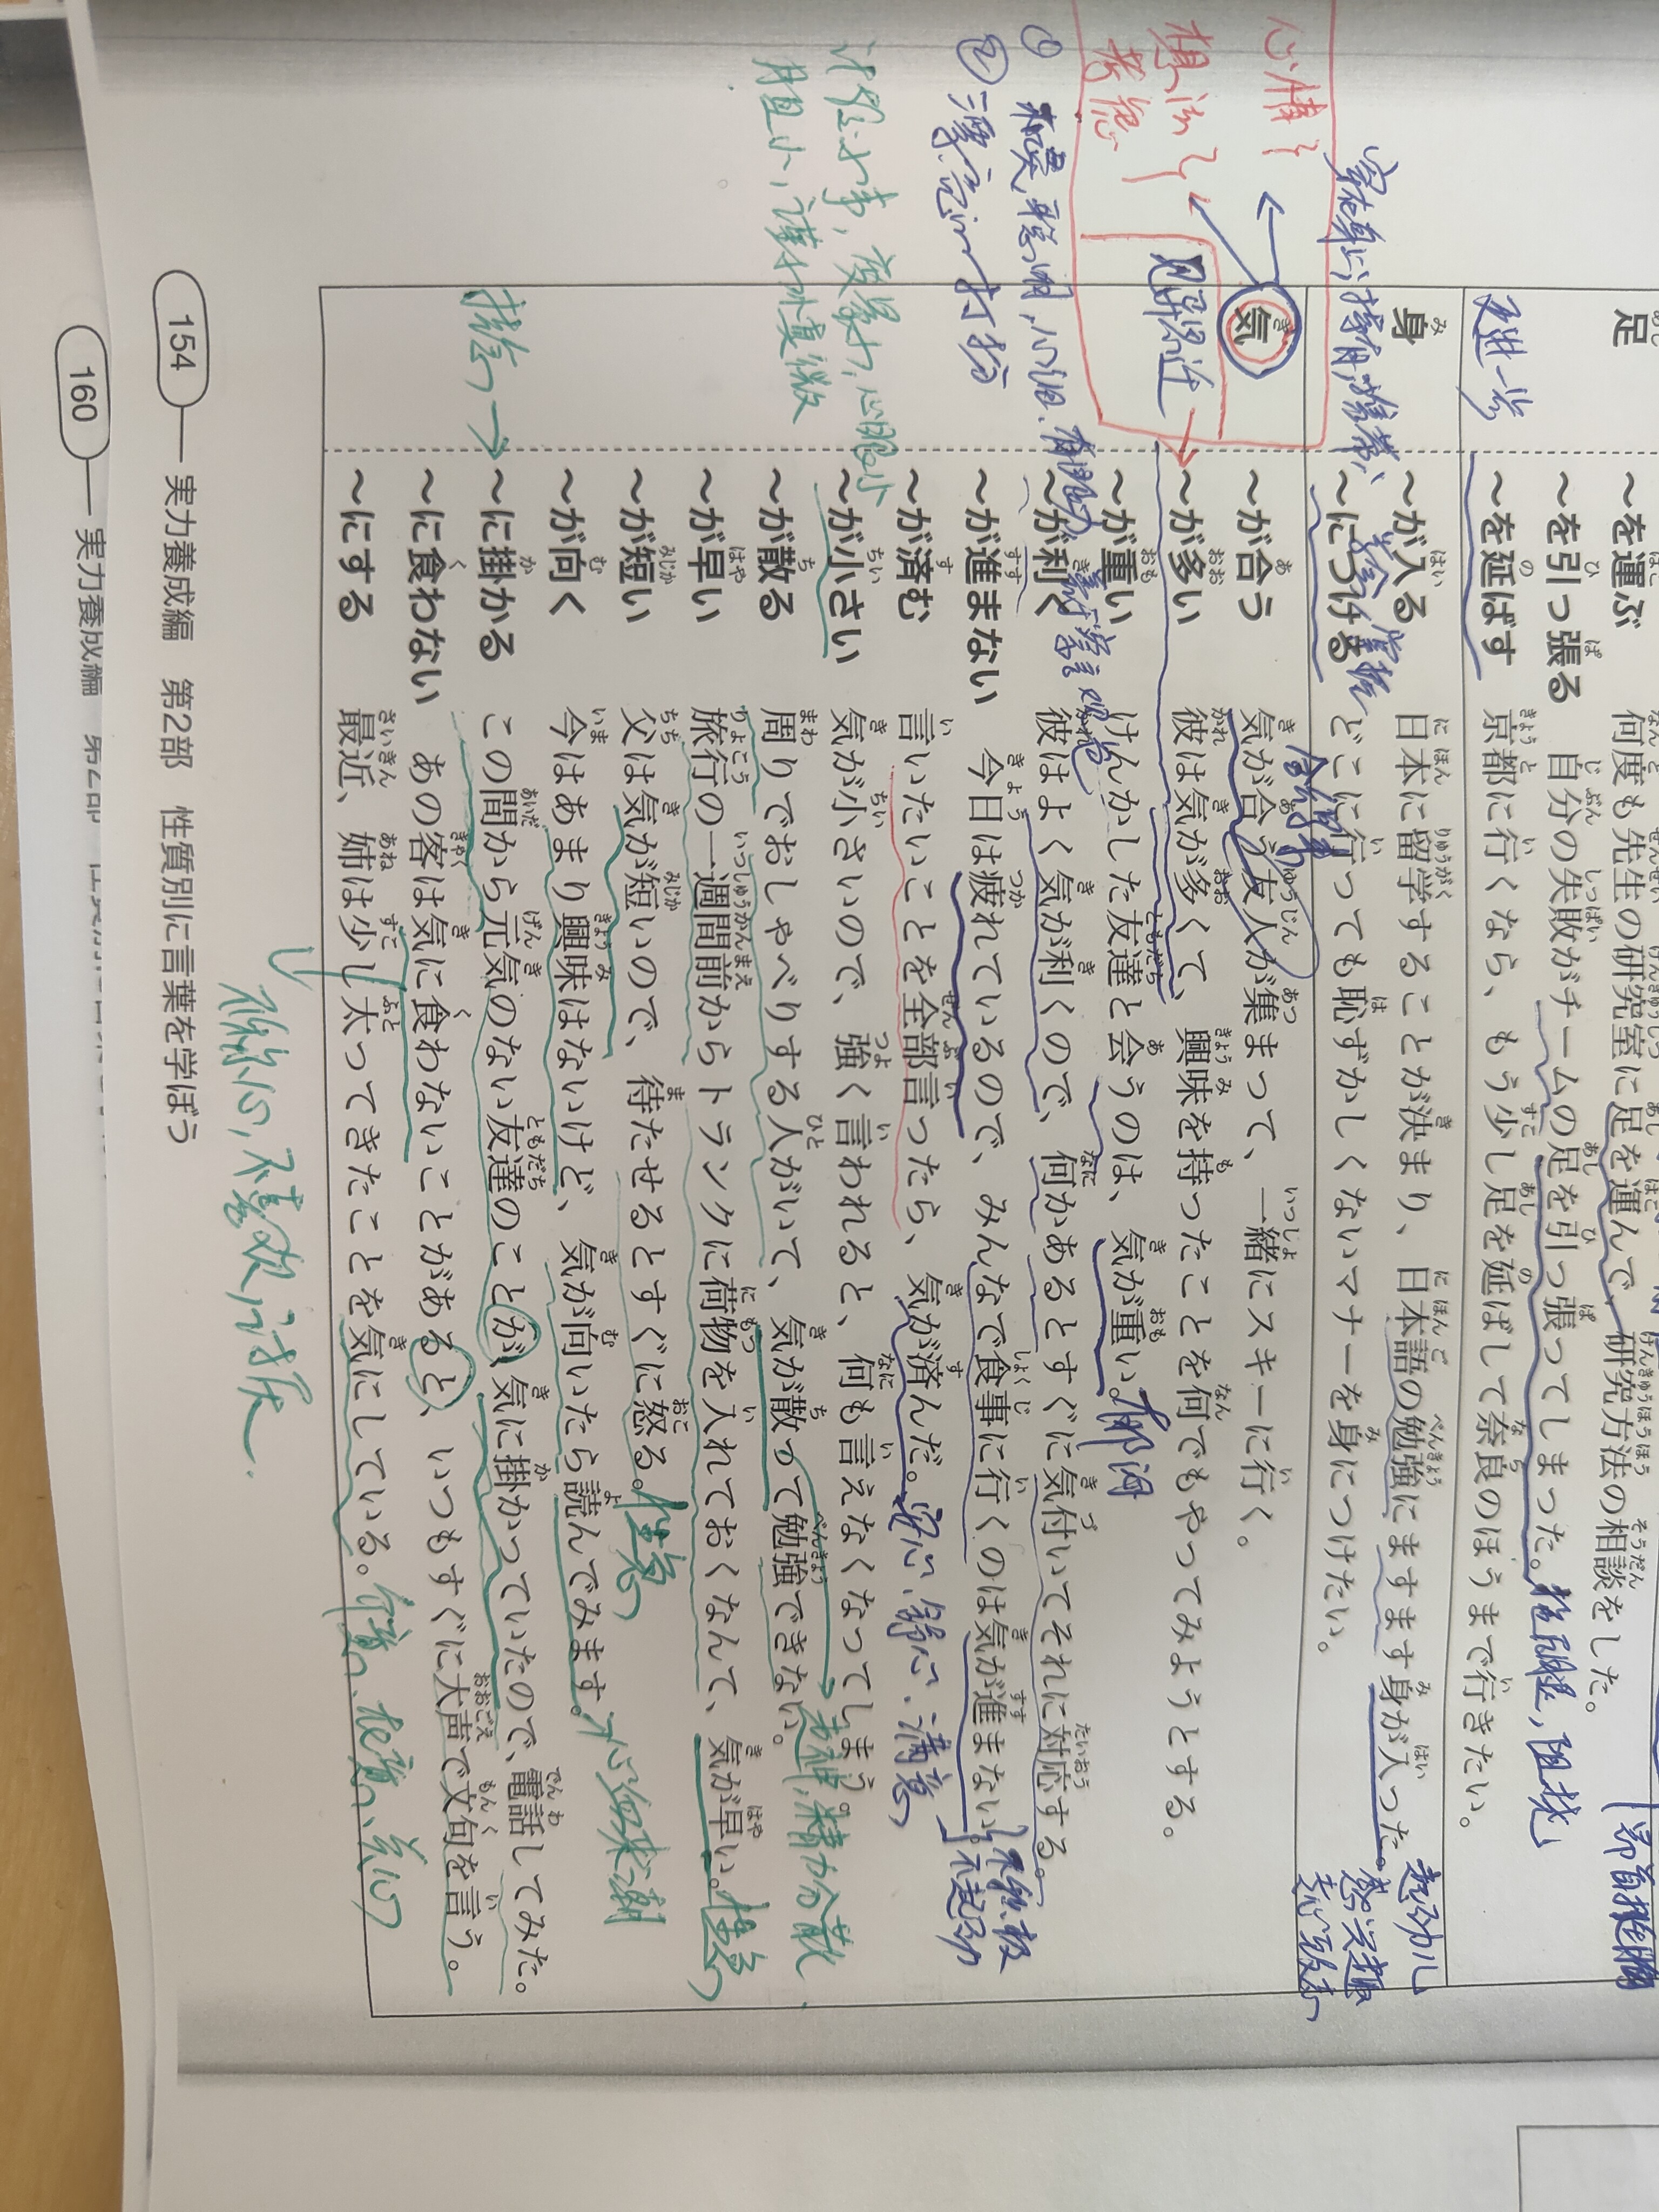 足
～を運ぶ 何度も先生の研究室に足を運んで、研究方法の相談をした。
～を引っ張る 自分の失敗がチームの足を引っ張ってしまった。拖后腿,阻挠
～を延ばす 京都に行くなら、もう少し足を延ばして奈良のほうまで行きたい。
更进一步
身
～が入る 日本に留学することが決まり、日本語の勉強にますます身が入った。
～につける どこに行っても恥ずかしくないマナーを身につけたい。
掌握
気
心情
想法
～が合う 気が合う友人が集まって、一緒にスキーに行く。
合得来
～が多い 彼は気が多くて、興味を持ったことを何でもやってみようとする。
見異思迁
～が重い けんかした友達と会うのは、気が重い。郁闷
～が利く 彼はよく気が利くので、何かあるとすぐに気付いてそれに対応する。
① 机灵,聪明,心细
～が進まない 今日は疲れているので、みんなで食事に行くのは気が進まない。
不积极
不起劲
～が済む 言いたいことを全部言ったら、気が済んだ。安心、舒心、满意
～が小さい 気が小さいので、強く言われると、何も言えなくなってしまう。
胆小,谨小慎微
～が散る 周りでおしゃべりする人がいて、気が散って勉強できない。
走神,精力分散
～が早い 旅行の一週間前からトランクに荷物を入れておくなんて、気が早い。性急
～が短い 父は気が短いので、待たせるとすぐに怒る。性急
～が向く 今はあまり興味はないけど、気が向いたら読んでみます。心血来潮
～に掛かる この間から元気のない友達のことが、気に掛かっていたので、電話してみた。
～に食わない あの客は気に食わないことがあると、いつもすぐに大声で文句を言う。
～にする 最近、姉は少し太ってきたことを気にしている。介意、在意、关心
154 実力養成編 第2部 性質別に言葉を学ぼう
160 実力養成編